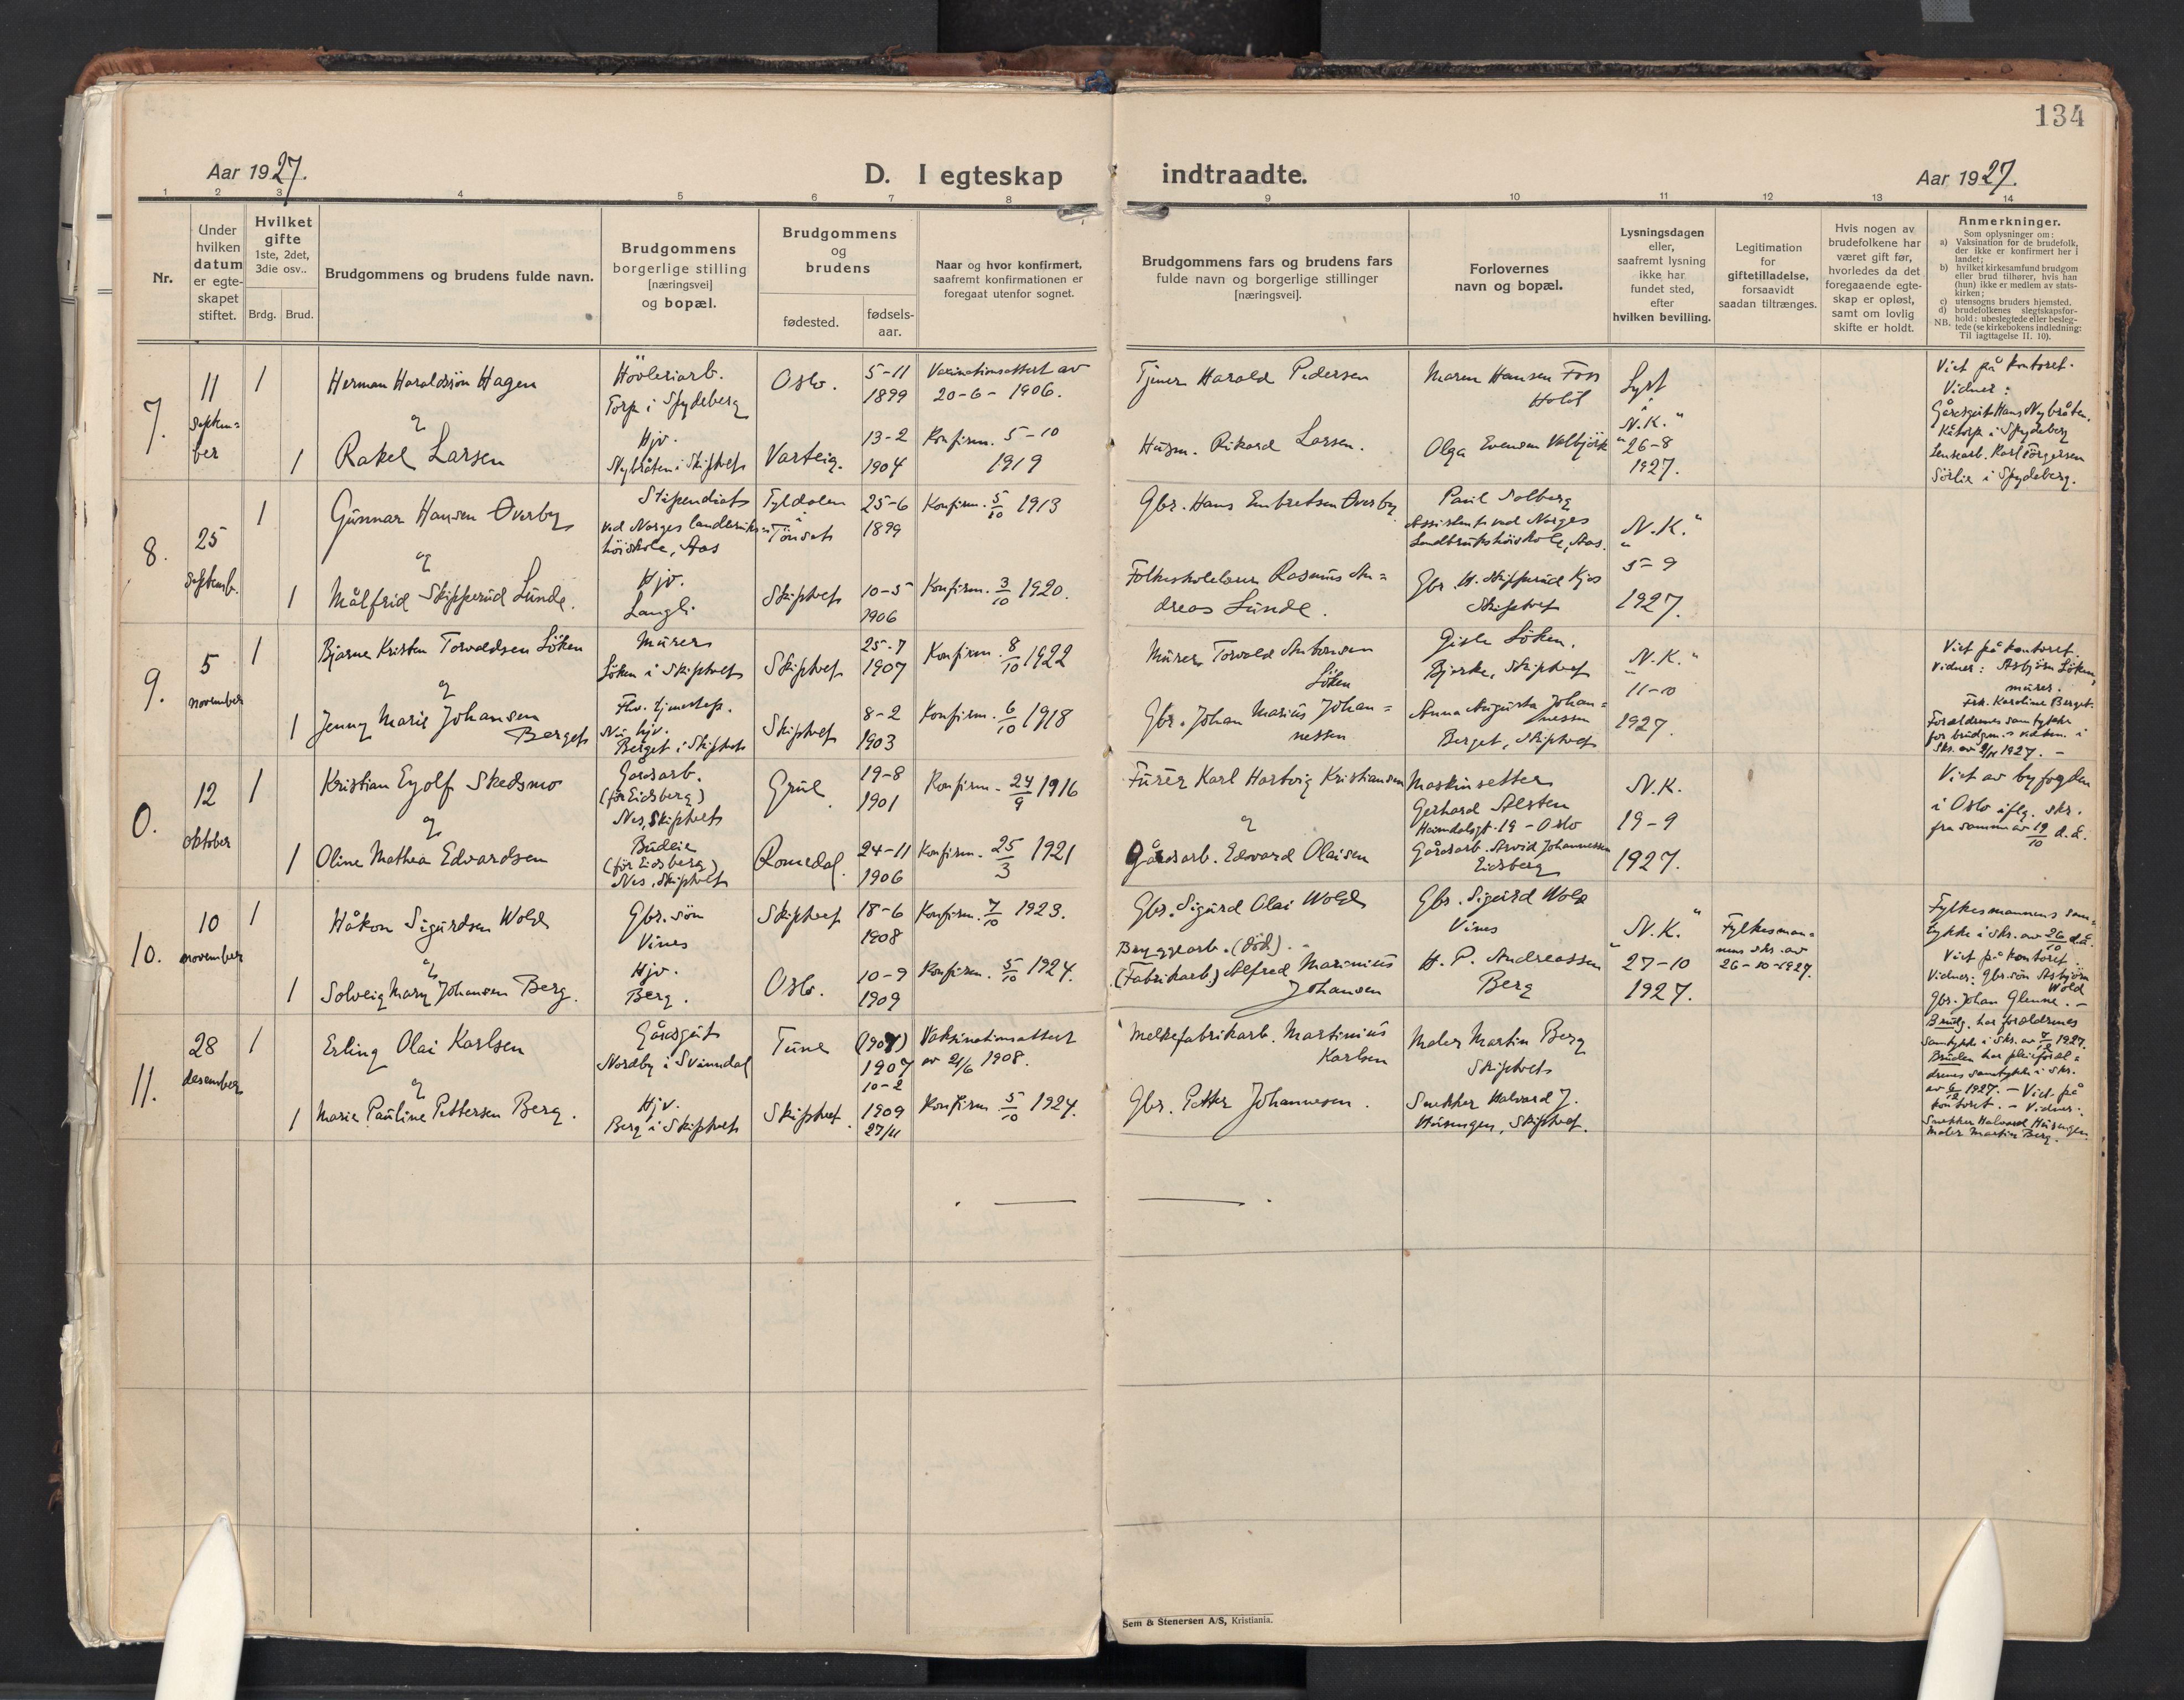 134
Aar 1927.
D. I egteskap
indtraadte.
Aar 1927.
1 2 3 4 5 6 7 8 9 10 11 12 13 14
Nr.
Under hvilken datum er egte-skapet stiftet.
Hvilket gifte
1ste, 2det, 3die osv..
Brdg. Brud.
Brudgommens og brudens fulde navn.
Brudgommens borgerlige stilling
[næringsvei]
og bopæl.
Brudgommens og brudens
fødested.
fødsels-aar.
Naar og hvor konfirmert,
saafremt konfirmationen er
foregaat utenfor sognet.
Brudgommens fars og brudens fars
fulde navn og borgerlige stillinger
[næringsvei].
Forlovernes
navn og bopæl.
Lysningsdagen
eller,
saafremt lysning
ikke har
fundet sted,
efter
hvilken bevilling.
Legitimation
for
giftetilladelse,
forsaavidt
saadan tiltrænges.
Hvis nogen av
brudefolkene har
været gift før,
hvorledes da det
foregaaende egte-
skap er opløst,
samt om lovlig
skifte er holdt.
Anmerkninger.
Som oplysninger om:
a) Vaksination for de brudefolk,
der ikke er konfirmert her i
landet;
b) hvilket kirkesamfund brudgom
eller brud tilhører, hvis han
(hun) ikke er medlem av stats-
kirken;
c) utensogns bruders hjemsted.
d) brudefolkenes slegtskapsfor-
hold: ubeslegtede eller besleg-
NB. tede (se kirkebokens indledning:
Til iagttagelse II. 10).
7.
11
septem=
ber
1
Herman Haraldsjön Hagen
Hövleriarb.
Torp i Spydeberg
Oslo.
5-11
1899
Vaxinationsattest av
20-6-1906.
Tjener Harald Pedersen
Maren Hansen Foss
Holöt
Lyst
i
"N.K."
26-8
1927.
Viet på kontoret.
Vidner:
Gårdsgut Hans Nybråten,
i Spydeberg
Karl Torgersen
Sörlie i Spydeberg.
og
1
Rakel Larsen
Hjv.
Nybråten i Skiptvet
Varteig.
13-2
1904
Konfirm. 5-10
1919
Husm. Rikard Larsen.
Olga Evensen Valbjörk
8.
25
septemb.
1
Gunnar Hansen Øverby
Stipendiat
ved Norges landbruks
höiskole, Aas
Tyldalen
i
Tönset
25-6
1899
Konfirm. 5/10 1913
Gbr. Hans Embretsen Øverby
Paul Solberg
Assistent ved Norges
Landbrukshöiskole, Aas.
"N.K."
5-9
1927.
og
1
Målfrid Skipperud Lunde.
Hjv.
Langli
Skiptvet
10-5
1906
Konfirm. 3/10 1920.
Folkeskolelærer Rasmus An=
dreas Lunde.
Gbr. H. Skipperud Kjos
Skiptvet
9.
5
november
1
Bjarne Kristen Torvaldsen Löken
Murer
Löken i Skiptvet
Skiptvet
25-7
1907
Konfirm. 8/10 1922
Murer Torvald Antonsen
Löken
Gisle Löken,
Bjerke, Skiptvet
"N.K."
11-10
1927.
Viet på kontoret.
Vidner: Asbjörn Löken,
murer.
Frk. Karoline Berget.
Forældrenes samtykke
for brudgm.s vedkom. i
skr. av 9/11 1927. -
og
1
Jenny Marie Johansen
Berget
Fhv. tjenestep.
Nu hjv.
Berget i Skiptvet
Skiptvet
8-2
1903
Konfirm. 6/10 1918
Gbr. Johan Marius Johan=
nessen
Anna Augusta Johan=
nessen
Berget, Skiptvet
0.
12
oktober
1
Kristian Eyolf Skedsmo
Gårdsarb.
(för Eidsberg)
Nes, Skiptvet
Grue
19-8
1901
Konfirm. 24/9 1916
Furer Karl Hartvig Kristiansen
Maskinsetter
Gerhard Alsten
Heimdalsgt. 19 - Oslo
N.K.
19-9
1927.
Viet av byfogden
i Oslo iflg. skr.
fra samme av 19/10 d.å.
og
og
1
Oline Mathea Edvardsen
Budeie
(för Eidsberg)
Nes, Skiptvet
Romedal.
24-11
1906
Konfirm. 25/3 1921
Gårdsarb. Edvard Olaisen
Gårdsarb. Arvid Johannessen
Eidsberg
10.
10
november
1
Håkon Sigurdsen Wold
Gbr. sön
Vines
Skiptvet
18-6
1908
Konfirm. 7/10 1923.
Gbr. Sigurd Olai Wold
Gbr. Sigurd Wold
Vines
"N.K."
27-10
1927.
Fylkesman=
nens skr. av
26-10-1927.
Fylkesmannens sam=
tykke i skr. av 26/10 d.å.
Viet på kontoret.
Vidner: Gbr. sön Asbjörn
Wold
Gbr. Johan Glenne. -
og
1
Solveig Mary Johansen Berg.
Hjv.
Berg.
Oslo.
10-9
1909
Konfirm. 5/10 1924.
Bryggearb. (död). -
(Fabrikarb.) Alfred Marinius
Johansen
H. P. Andreassen
Berg
11.
28
desember
1
Erling Olai Karlsen
Gårdsgut
Nordby i Svinndal
Tune
(1907)
1907
10-2
Vaksinationsattest
av 21/6 1908.
Melkefabrikarb. Martinius
Karlsen
Maler Martin Berg
Skiptvet
Brudg. har forældrenes
samtykke i skr. av 7/12 1927.
Bruden har pleieforæl=
drenes samtykke i skr.
av 6/12 1927. - Viet på
kontoret. - Vidner:
Snekker Halvard Husengen
Maler Martin Berg.
og
1
Marie Pauline Pettersen Berg.
Hjv.
Berg i Skiptvet
Skiptvet.
1909
27/11
Konfirm. 5/10 1924.
Gbr. Petter Johannesen.
Snekker Halvard J.
Husengen, Skiptvet.
Sem & Stenersen A/S, Kristiania.